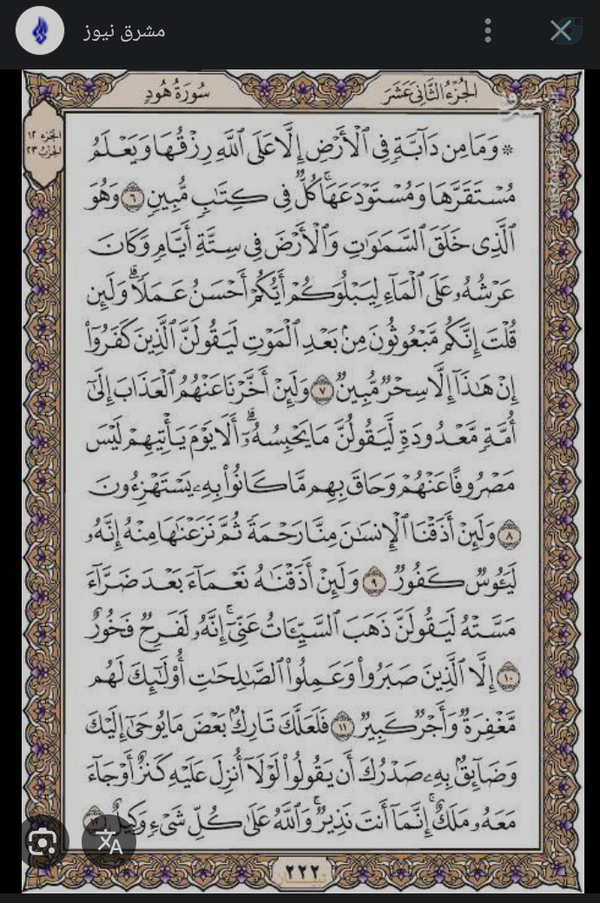 مشرق نیوز
الجُزْءُ الثَّانِي عَشَرَ
سُورَةُ هُودٍ
الجزء ١٢
الحزب ٢٣
* وَمَا مِن دَآبَّةٍ فِي ٱلْأَرْضِ إِلَّا عَلَى ٱللَّهِ رِزْقُهَا وَيَعْلَمُ
مُسْتَقَرَّهَا وَمُسْتَوْدَعَهَا ۚ كُلٌّ فِي كِتَٰبٍ مُّبِينٍ ٦ وَهُوَ
ٱلَّذِي خَلَقَ ٱلسَّمَٰوَٰتِ وَٱلْأَرْضَ فِي سِتَّةِ أَيَّامٍ وَكَانَ
عَرْشُهُۥ عَلَى ٱلْمَآءِ لِيَبْلُوَكُمْ أَيُّكُمْ أَحْسَنُ عَمَلًا ۗ وَلَئِن
قُلْتَ إِنَّكُم مَّبْعُوثُونَ مِنۢ بَعْدِ ٱلْمَوْتِ لَيَقُولَنَّ ٱلَّذِينَ كَفَرُوٓا۟
إِنْ هَٰذَآ إِلَّا سِحْرٌ مُّبِينٌ ٧ وَلَئِنْ أَخَّرْنَا عَنْهُمُ ٱلْعَذَابَ إِلَىٰٓ
أُمَّةٍ مَّعْدُودَةٍ لَّيَقُولُنَّ مَا يَحْبِسُهُۥٓ ۗ أَلَا يَوْمَ يَأْتِيهِمْ لَيْسَ
مَصْرُوفًا عَنْهُمْ وَحَاقَ بِهِم مَّا كَانُوا۟ بِهِۦ يَسْتَهْزِءُونَ
٨ وَلَئِنْ أَذَقْنَا ٱلْإِنسَٰنَ مِنَّا رَحْمَةً ثُمَّ نَزَعْنَٰهَا مِنْهُ إِنَّهُۥ
لَيَـُٔوسٌ كَفُورٌ ٩ وَلَئِنْ أَذَقْنَٰهُ نَعْمَآءَ بَعْدَ ضَرَّآءَ
مَسَّتْهُ لَيَقُولَنَّ ذَهَبَ ٱلسَّيِّـَٔاتُ عَنِّيٓ ۚ إِنَّهُۥ لَفَرِحٌ فَخُورٌ
١٠ إِلَّا ٱلَّذِينَ صَبَرُوا۟ وَعَمِلُوا۟ ٱلصَّٰلِحَٰتِ أُو۟لَٰٓئِكَ لَهُم
مَّغْفِرَةٌ وَأَجْرٌ كَبِيرٌ ١١ فَلَعَلَّكَ تَارِكٌۢ بَعْضَ مَا يُوحَىٰٓ إِلَيْكَ
وَضَآئِقٌۢ بِهِۦ صَدْرُكَ أَن يَقُولُوا۟ لَوْلَآ أُنزِلَ عَلَيْهِ كَنزٌ أَوْ جَآءَ
مَعَهُۥ مَلَكٌ ۚ إِنَّمَآ أَنتَ نَذِيرٌ ۚ وَٱللَّهُ عَلَىٰ كُلِّ شَيْءٍ وَكِيلٌ ١٢
٢٢٢